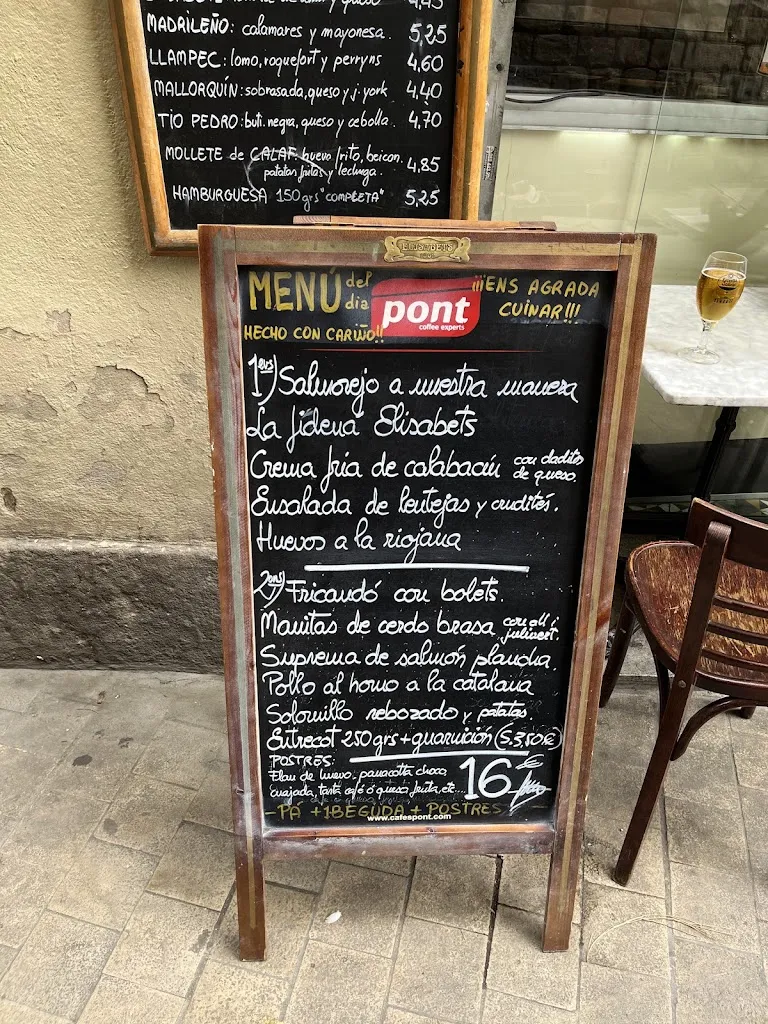 MADRILEÑO: calamares y mayonesa. 5,25
LLAMPEC: lomo, roquefort y perryns 4,60
MALLORQUÍN: sobrasada, queso y j. york 4,40
TÍO PEDRO: buti. negra, queso y cebolla. 4,70
MOLLETE de CALAF huevo frito, beicon. 4,85
patatas fritas y lechuga.
HAMBURGUESA 150 grs "COMPLETA" 5,25
ELISABETS
MENÚ del dia
pont
coffee experts
¡¡¡ENS AGRADA
CUINAR!!!
HECHO CON CARIÑO!!
1ers) Salmorejo a nuestra manera
La fideuá Elisabets
Crema fría de calabacín con daditos
de queso.
Ensalada de lentejas y crudités.
Huevos a la riojana
2ons) Fricandó con bolets.
Manitas de cerdo brasa con all i
julivert.
Suprema de salmón plancha.
Pollo al horno a la catalana
Solomillo rebozado y patatas.
Entrecot 250 grs + guarnición (S. 3,50 €)
POSTRES:
Flan de huevo - panacotta choco
cuajada, tarta café ó queso, fruta, etc... 16 €
- PÁ + 1 BEGUDA + POSTRES -
www.cafespont.com